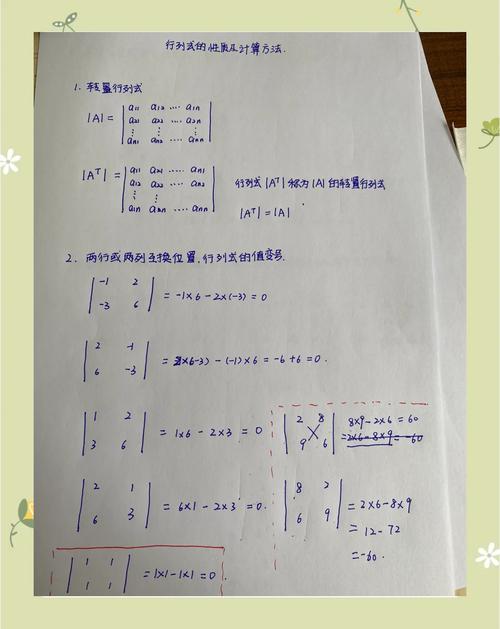 行列式的性质及计算方法.
1. 转置行列式
|A| = | a11 a12 .... a1n |
| a21 a22 .... a2n |
| ⋮ ⋮ ⋮ |
| an1 an2 .... ann |
|Aᵀ| = | a11 a21 ..... an1 |
| a12 a22 ..... an2 |
| ⋮ ⋮ |
| a1n a2n .... ann |
行列式 |Aᵀ| 称为 |A| 的转置行列式
|Aᵀ| = |A|
2. 两行或两列互换位置,行列式的值变号.
| -1 2 |
| -3 6 | = -1×6-2×(-3) = 0
| 2 -1 |
| 6 -3 | = 2×(-3) - (-1)×6 = -6+6 = 0.
| 1 2 |
| 3 6 | = 1×6 - 2×3 = 0
| 2 1 |
| 6 3 | = 6×1 - 2×3 = 0.
| 1 1 |
| 1 1 | = 1×1-1×1 = 0.
| 2 8 | 8×9-2×6 = 60
| 9 6 | = 2×6-8×9 = -60
| 8 2 |
| 6 9 | = 2×6-8×9
= 12-72
= -60.